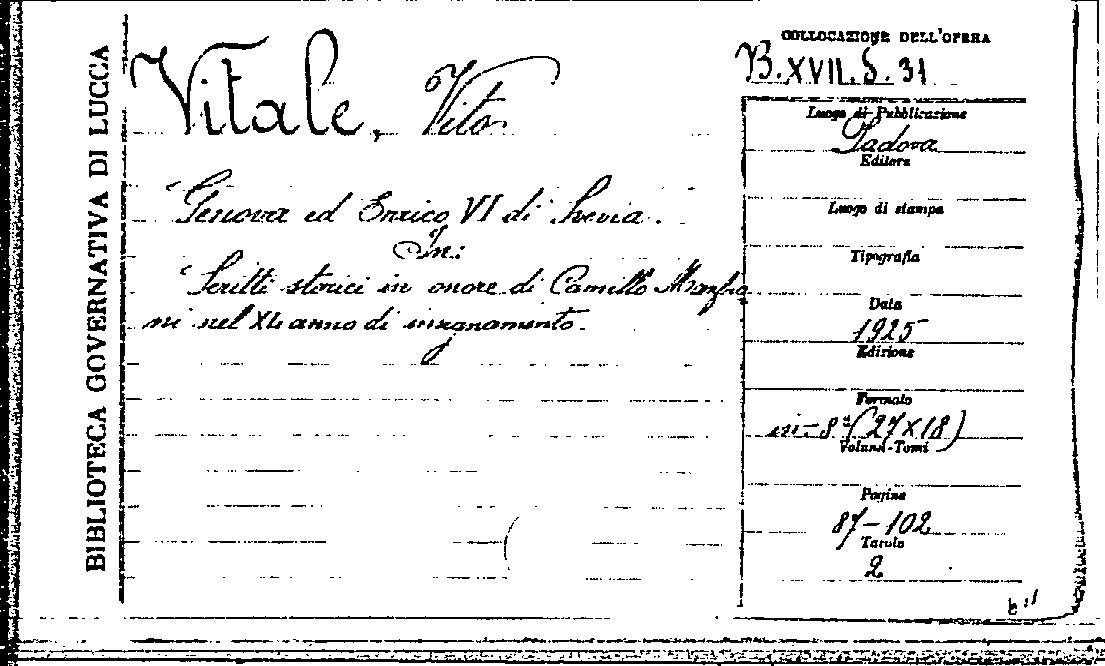 BIBLIOTECA GOVERNATIVA DI LUCCA
Vitale, Vito
Genova ed Enrico VI di Svevia.
In:
Scritti storici in onore di Camillo Manfro
ni nel XL anno di insegnamento.
COLLOCAZIONE DELL'OPERA
B. XVII. S. 31
Luogo di Pubblicazione
Padova
Editore
Luogo di stampa
Tipografia
Data
1925
Edizione
Formato
in-8° (27X18)
Volumi-Tomi
Pagine
87-102
Tavole
2